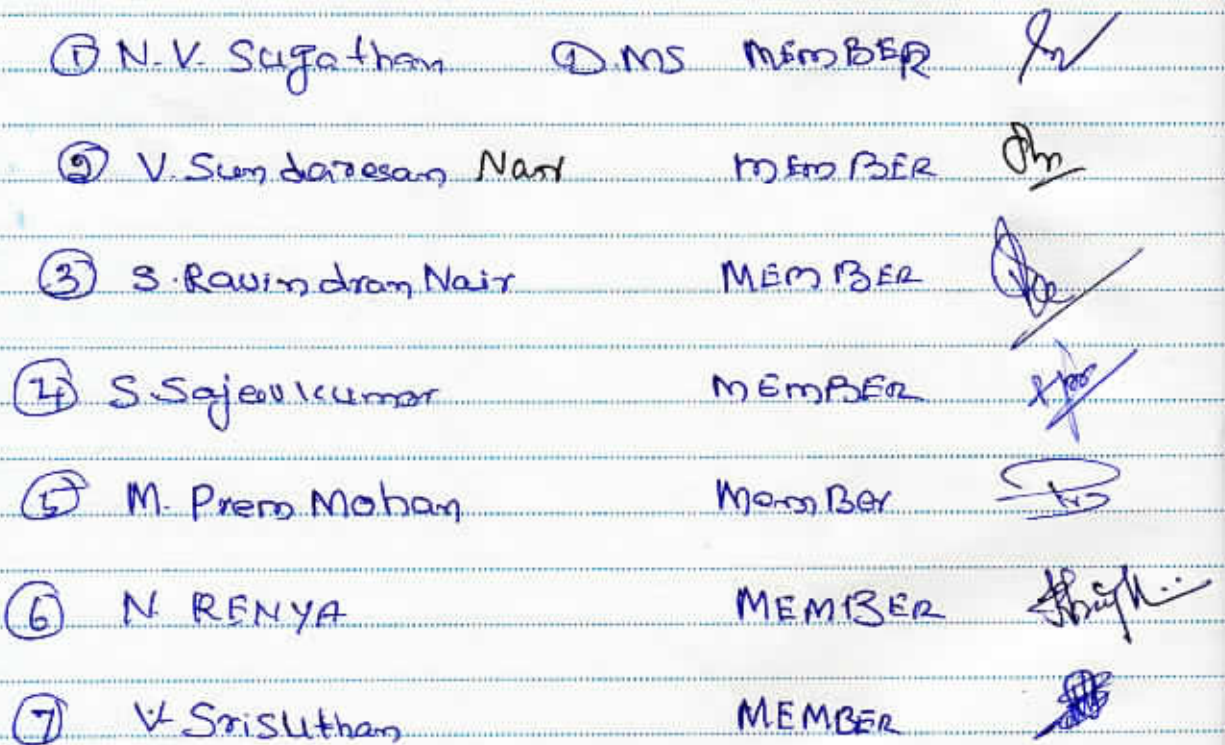 ① N.V. Sugathan ①.MS MEMBER
② V. Sundaresan Nair MEMBER
③ S. Ravindran Nair MEMBER
④ S. Sajeevkumar MEMBER
⑤ M. Prem Mohan MemBer
⑥ N. RENYA MEMBER
⑦ V. Srisuthan MEMBER